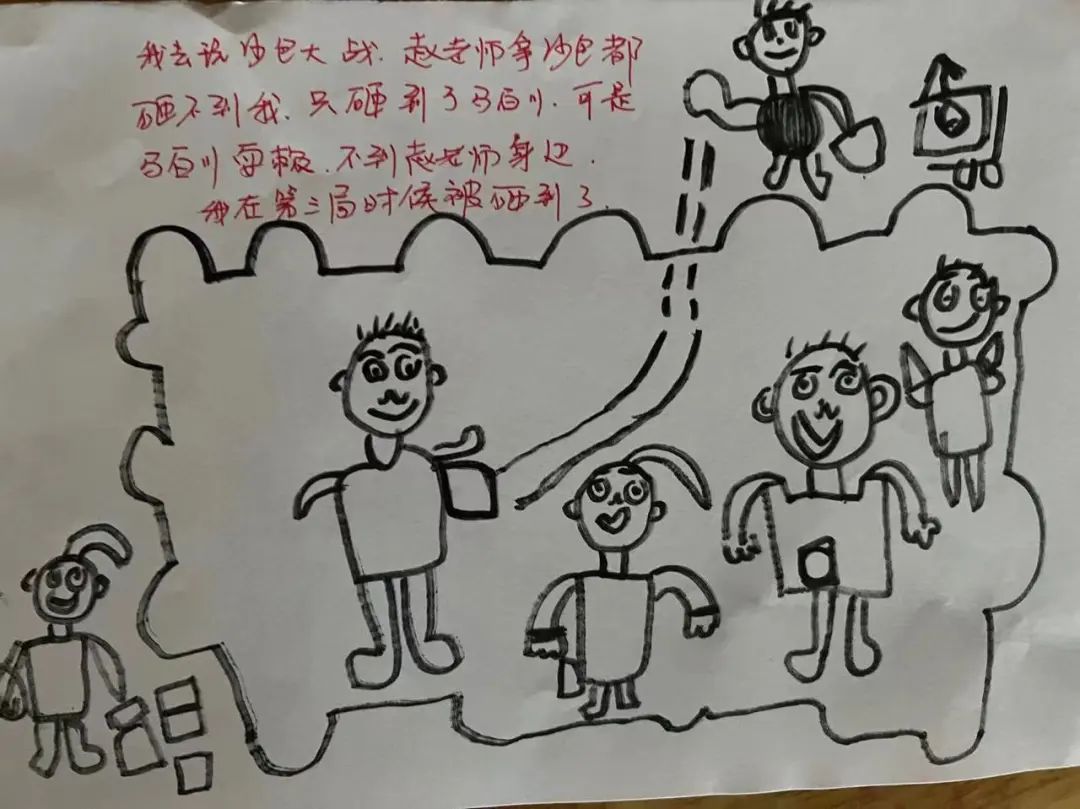 我去说沙包大战.赵老师拿沙包都
砸不到我.只砸到了马百川.可是
马百川耍赖.不到赵老师身边.
我在第三局时候被砸到了.